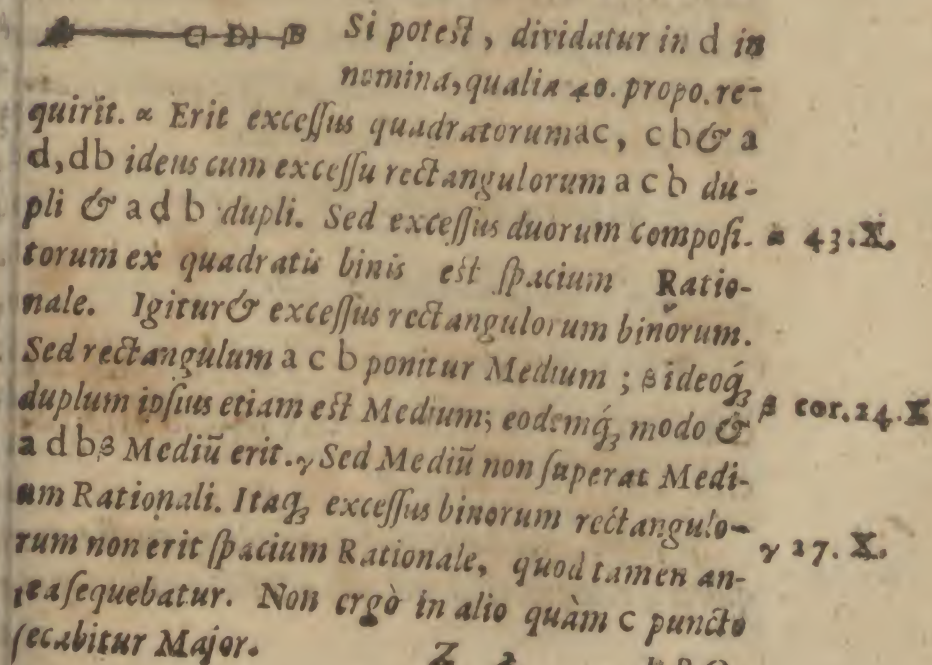 A C D B Si potest, dividatur in d in
nomina, qualia 40. propo. re-
quirit. α Erit excessus quadratorum ac, cb & a
d, db idem cum excessu rectangulorum a c b du-
pli & a d b dupli. Sed excessus duorum composi- α 43. X.
torum ex quadratis binis est spacium Ratio-
nale. Igitur & excessus rectangulorum binorum.
Sed rectangulum a c b ponitur Medium; β ideoq́;
duplum ipsius etiam est Medium; eodemq́; modo & β cor. 24. X
a d b β Mediū erit. γ Sed Mediū non superat Medi-
um Rationali. Itaq; excessus binorum rectangulo-
rum non erit spacium Rationale, quod tamen an- γ 27. X.
tea sequebatur. Non ergò in alio quàm c puncto
secabitur Major.